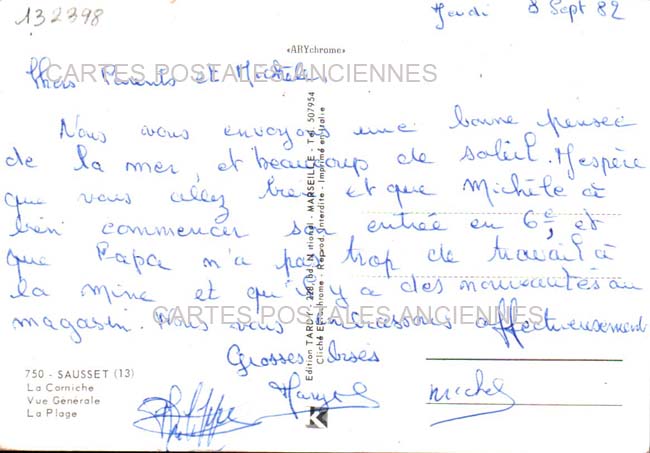 132398
Jeudi 8 Sept 82
«ARYchrome»
Chers Parents et Michèle,
CARTES POSTALES ANCIENNES
Nous vous envoyons une bonne pensée
de la mer, et beaucoup de soleil. J'espère
que vous allez bien et que Michèle à
bien commencer son entrée en 6e, et
que Papa n'a pas trop de travail à
la mine et qu'il y a des nouveautés au
magasin. Nous vous embrassons affectueusement
CARTES POSTALES ANCIENNES
Grosses bises
Philippe Michel
750 - SAUSSET (13)
La Corniche
Vue Générale
La Plage
Edition TARDY - 228, bd. National - MARSEILLE - Tél. 507954
Cliché Eurochrome - Reprod. Interdite - Imprimé en Italie
K